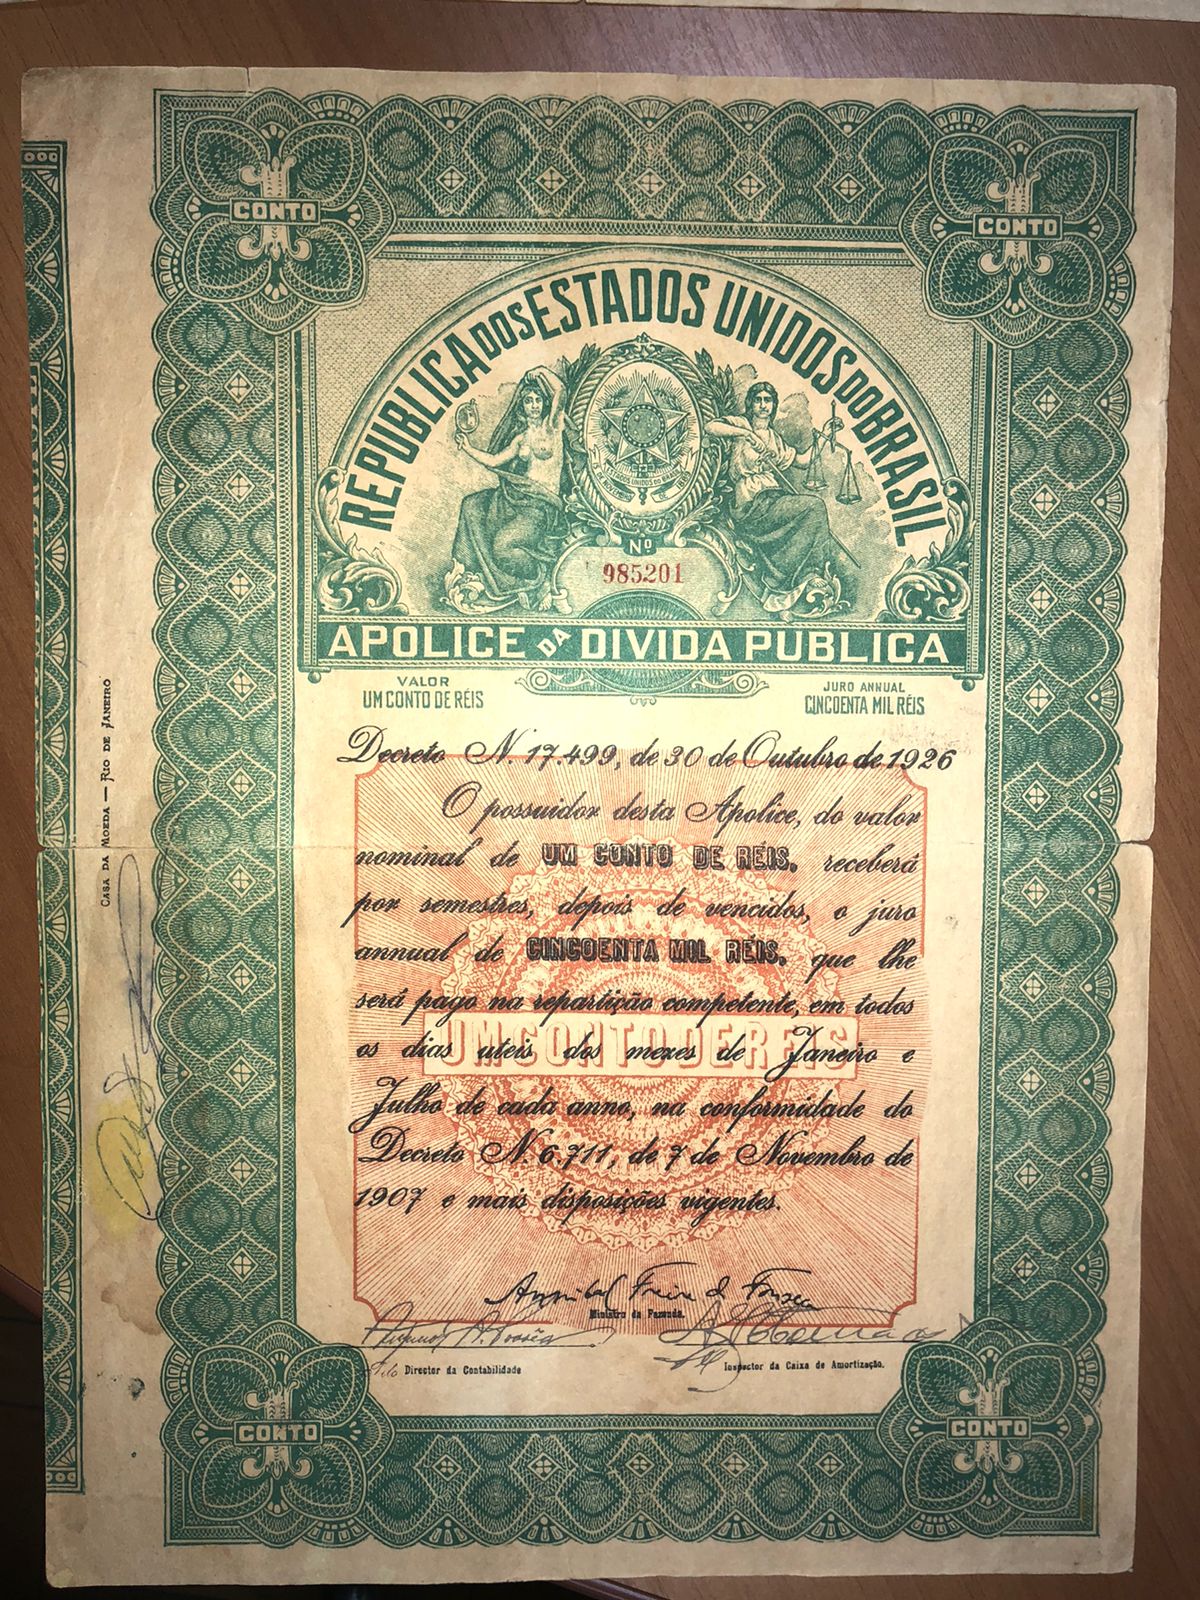 1 CONTO
1 CONTO
REPUBLICA DOS ESTADOS UNIDOS DO BRASIL
ESTADOS UNIDOS DO BRASIL
15 DE NOVEMBRO DE 1889
Nº
985201
APOLICE DA DIVIDA PUBLICA
VALOR
UM CONTO DE RÉIS
JURO ANNUAL
CINCOENTA MIL RÉIS
Decreto N. 17.499, de 30 de Outubro de 1926
O possuidor desta Apolice, do valor
nominal de UM CONTO DE RÉIS, receberá
por semestres, depois de vencidos, o juro
annual de CINCOENTA MIL RÉIS, que lhe
será pago na repartição competente, em todos
os dias uteis dos mezes de Janeiro e
UM CONTO DE REIS
Julho de cada anno, na conformidade do
Decreto N. 6.711, de 7 de Novembro de
1907 e mais disposições vigentes.
Annibal Freire da Fonseca
Ministro da Fazenda.
Pelo Director da Contabilidade
Inspector da Caixa de Amortização.
1 CONTO
1 CONTO
CASA DA MOEDA — RIO DE JANEIRO